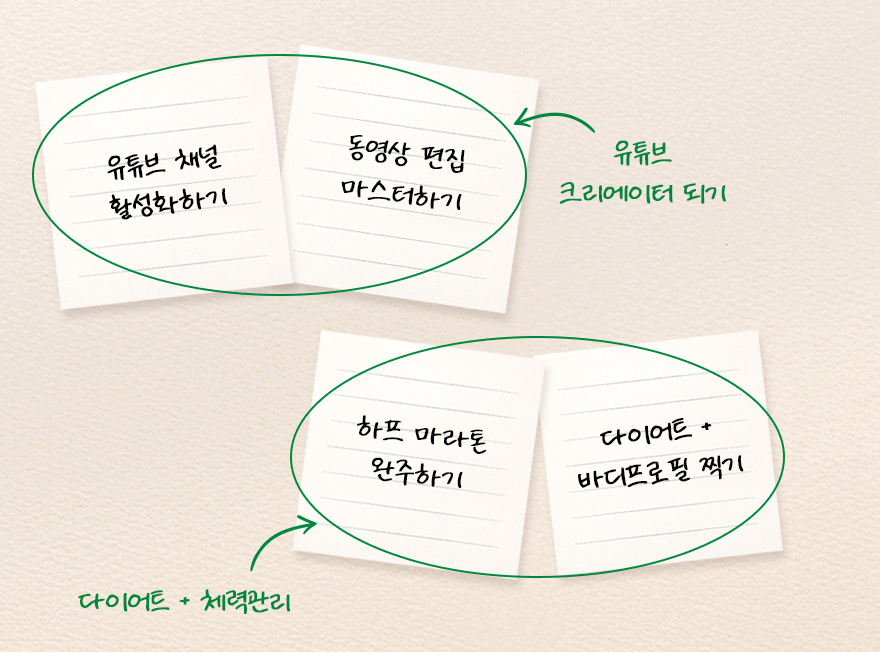 유튜브 채널
활성화하기
동영상 편집
마스터하기
유튜브
크리에이터 되기
하프 마라톤
완주하기
다이어트 +
바디프로필 찍기
다이어트 + 체력관리